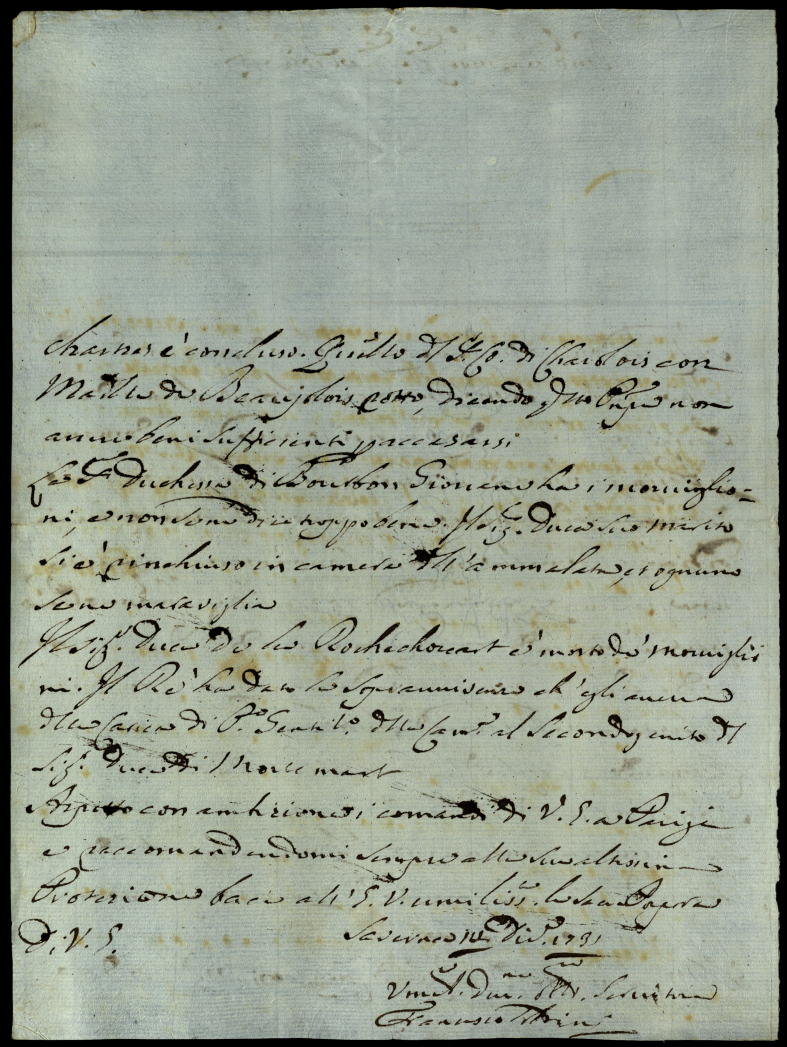 chartres é concluso. Quello dl Sr. Co. di Charolois con
Madlle de Beaujolois rotto, dicendo qsto Prnpe non
avere beni sufficienti p accasarsi
La Sra Duchessa di Bourbon Giovane ha i morviglio=
ni, e non sene dice troppo bene. Il Sigr. Duca suo marito
si é rinchiuso in camera dll'ammalata, et ognuno
sene maraviglia
Il Sigr. Duca de la Rochechouart é morto de' morviglio
ni. Il Ré ha dato la Sopravivenza ch'egli aveva
dlla Carica di Po. Gentilo. dlla Cama al Secondgenito dl
Sigr. Duca di Mortemart
Aspetto con ambizione i comandi di V. E. a Parigi
e raccomandandomi sempre alla sua altissima
Protezione bacio all'E. V. umiliss. la sua Popora
Di V. E.
Saverna Xbre 1731
Umo. Devmo. Servitore
Francesco